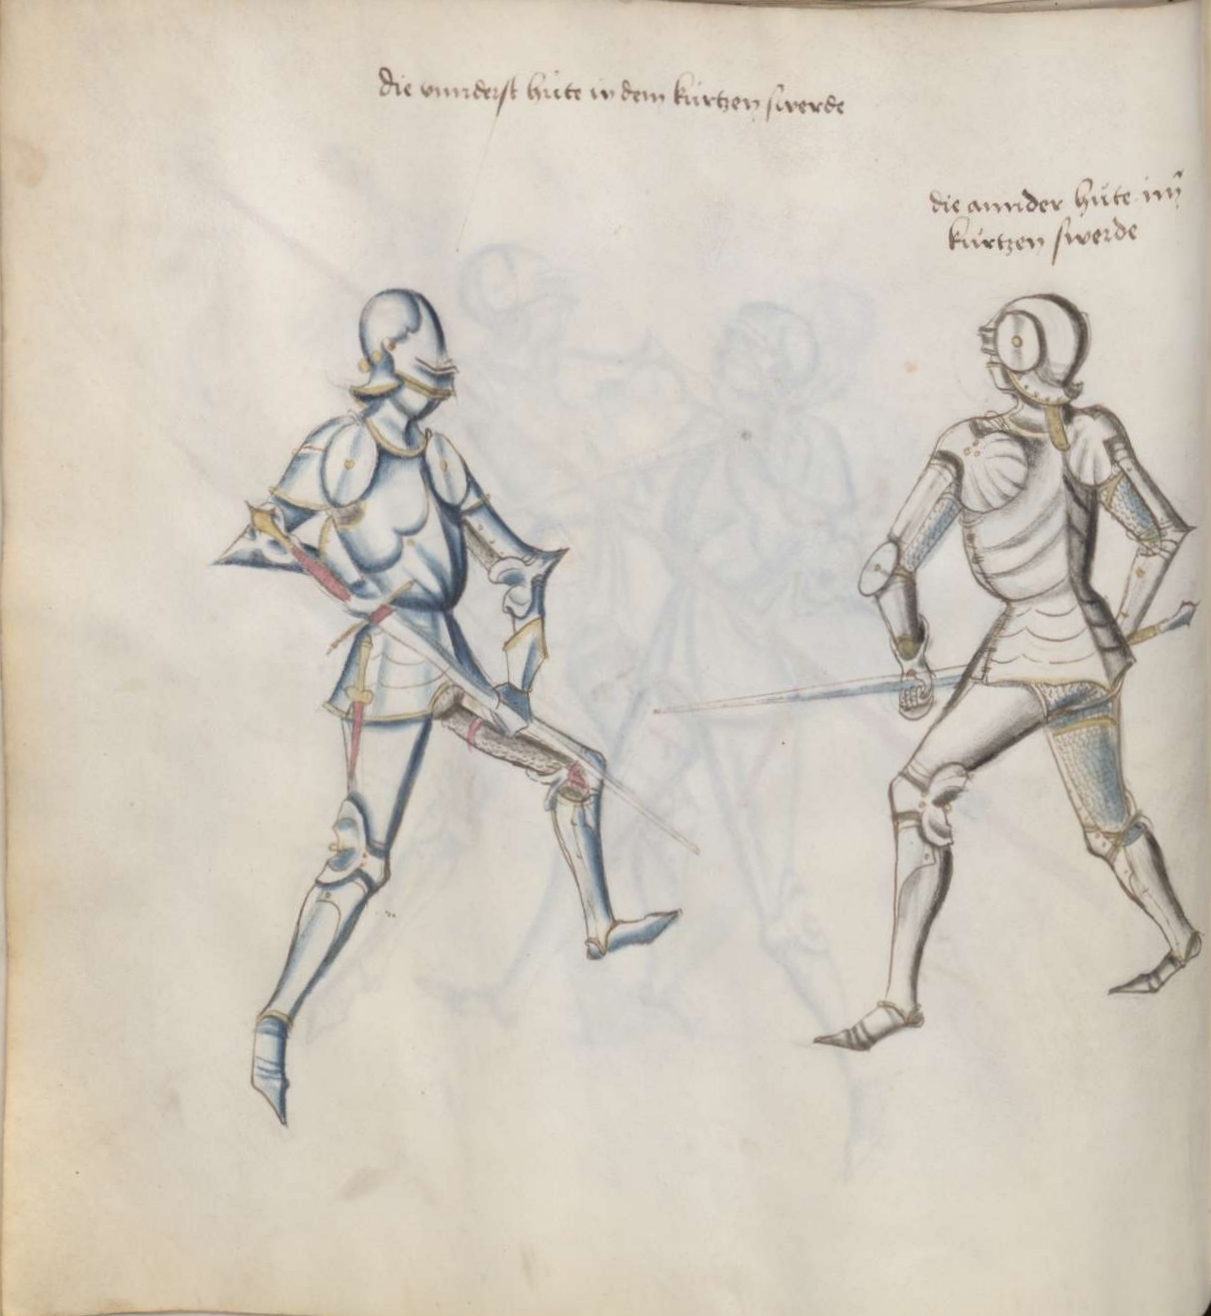 die vnnderst hůte in dem kůrtzen swerde
die annder hůte im̃
kůrtzen swerde